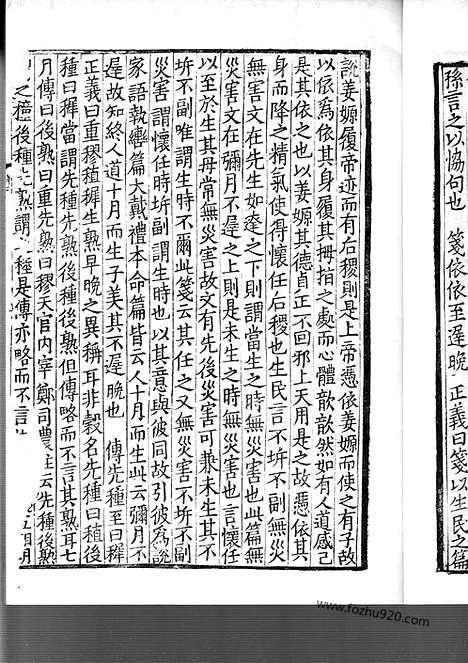 孫言之以協句也 箋依依至遲晚 正義曰箋以生民之篇
說姜嫄履帝迹而有后稷則是上帝憑依姜嫄而使之有子故
以依為依其身履其拇指之處而心體歆歆然如有人道感己
是其依之也以姜嫄其德貞正不回邪上天用是之故憑依其
身而降之精氣使得懷任后稷也生民言不坼不副無災
無害文在先生如達之下則謂當生之時無災害也此篇無
災害文在彌月不遲之上則是未生之時無災害也言懷任
以至於生其母常無災害故文有先後災害可兼未生其不
坼不副唯謂生時不爾此箋云其任之又無災害不坼不副
災害謂懷任時坼副謂生時也以其意與彼同故引彼為說
家語執轡篇大戴禮本命篇皆云人十月而生此云彌月不
遲故知終人道十月而生子美其不遲晚也 傳先種至曰稺
正義曰重穋稙稺生熟早晚之異稱耳非穀名先種曰稙後
種曰稺當謂先種先熟後種後熟但傳略而不言其熟耳七
月傳曰後熟曰重先熟曰穋天官內宰鄭司農注云先種後熟
之穜後種先熟謂 種是傳亦略而不言